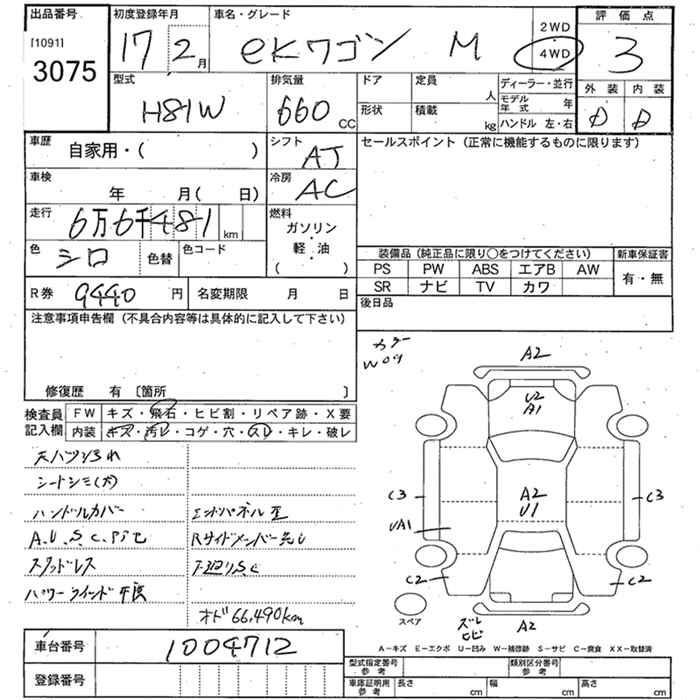 出品番号 初度登録年月 車名・グレード 2WD 評価点
[1091] 17 2月 eKワゴン M 4WD 3
3075
型式 排気量 ドア 定員 人 ディーラー・並行 外装 内装
H81W 660 CC 形状 積載 kg モデル年式 年 D D
ハンドル 左・右
車歴 自家用・( ) シフト AT セールスポイント(正常に機能するものに限ります)
車検 年 月( 日) 冷房 AC
走行 6万6千481 km 燃料 ガソリン・軽・油 ( )
色 シロ 色替 色コード 装備品(純正品に限り○をつけてください) 新車保証書
PS PW ABS エアB AW 有・無
R券 9440円 名変期限 月 日 SR ナビ TV カワ
後日品
注意事項申告欄(不具合内容等は具体的に記入して下さい)
修復歴 有〔箇所 〕
検査員 FW キズ・飛石・ヒビ割・リペア跡・X要
記入欄 内装 キズ・汚レ・コゲ・穴・スレ・キレ・破レ
シートシミ(大)
ハンドルカバー エンドパネル歪
A.U.S.C.
スタッドレス 下廻りS.C
パワーウインド不良
オド66,490km
車台番号 1004712
登録番号
A2
U2
A1
A2
U1
C3 C3
UA1
C2 C2
スペア
ズレ
ヒビ A2
A-キズ E-エクボ U-凹み W-補修跡 S-サビ C-腐食 XX-取替済
型式指定番号 参考 類別区分番号 参考
車庫証明用 参考 長さ cm 幅 cm 高さ cm